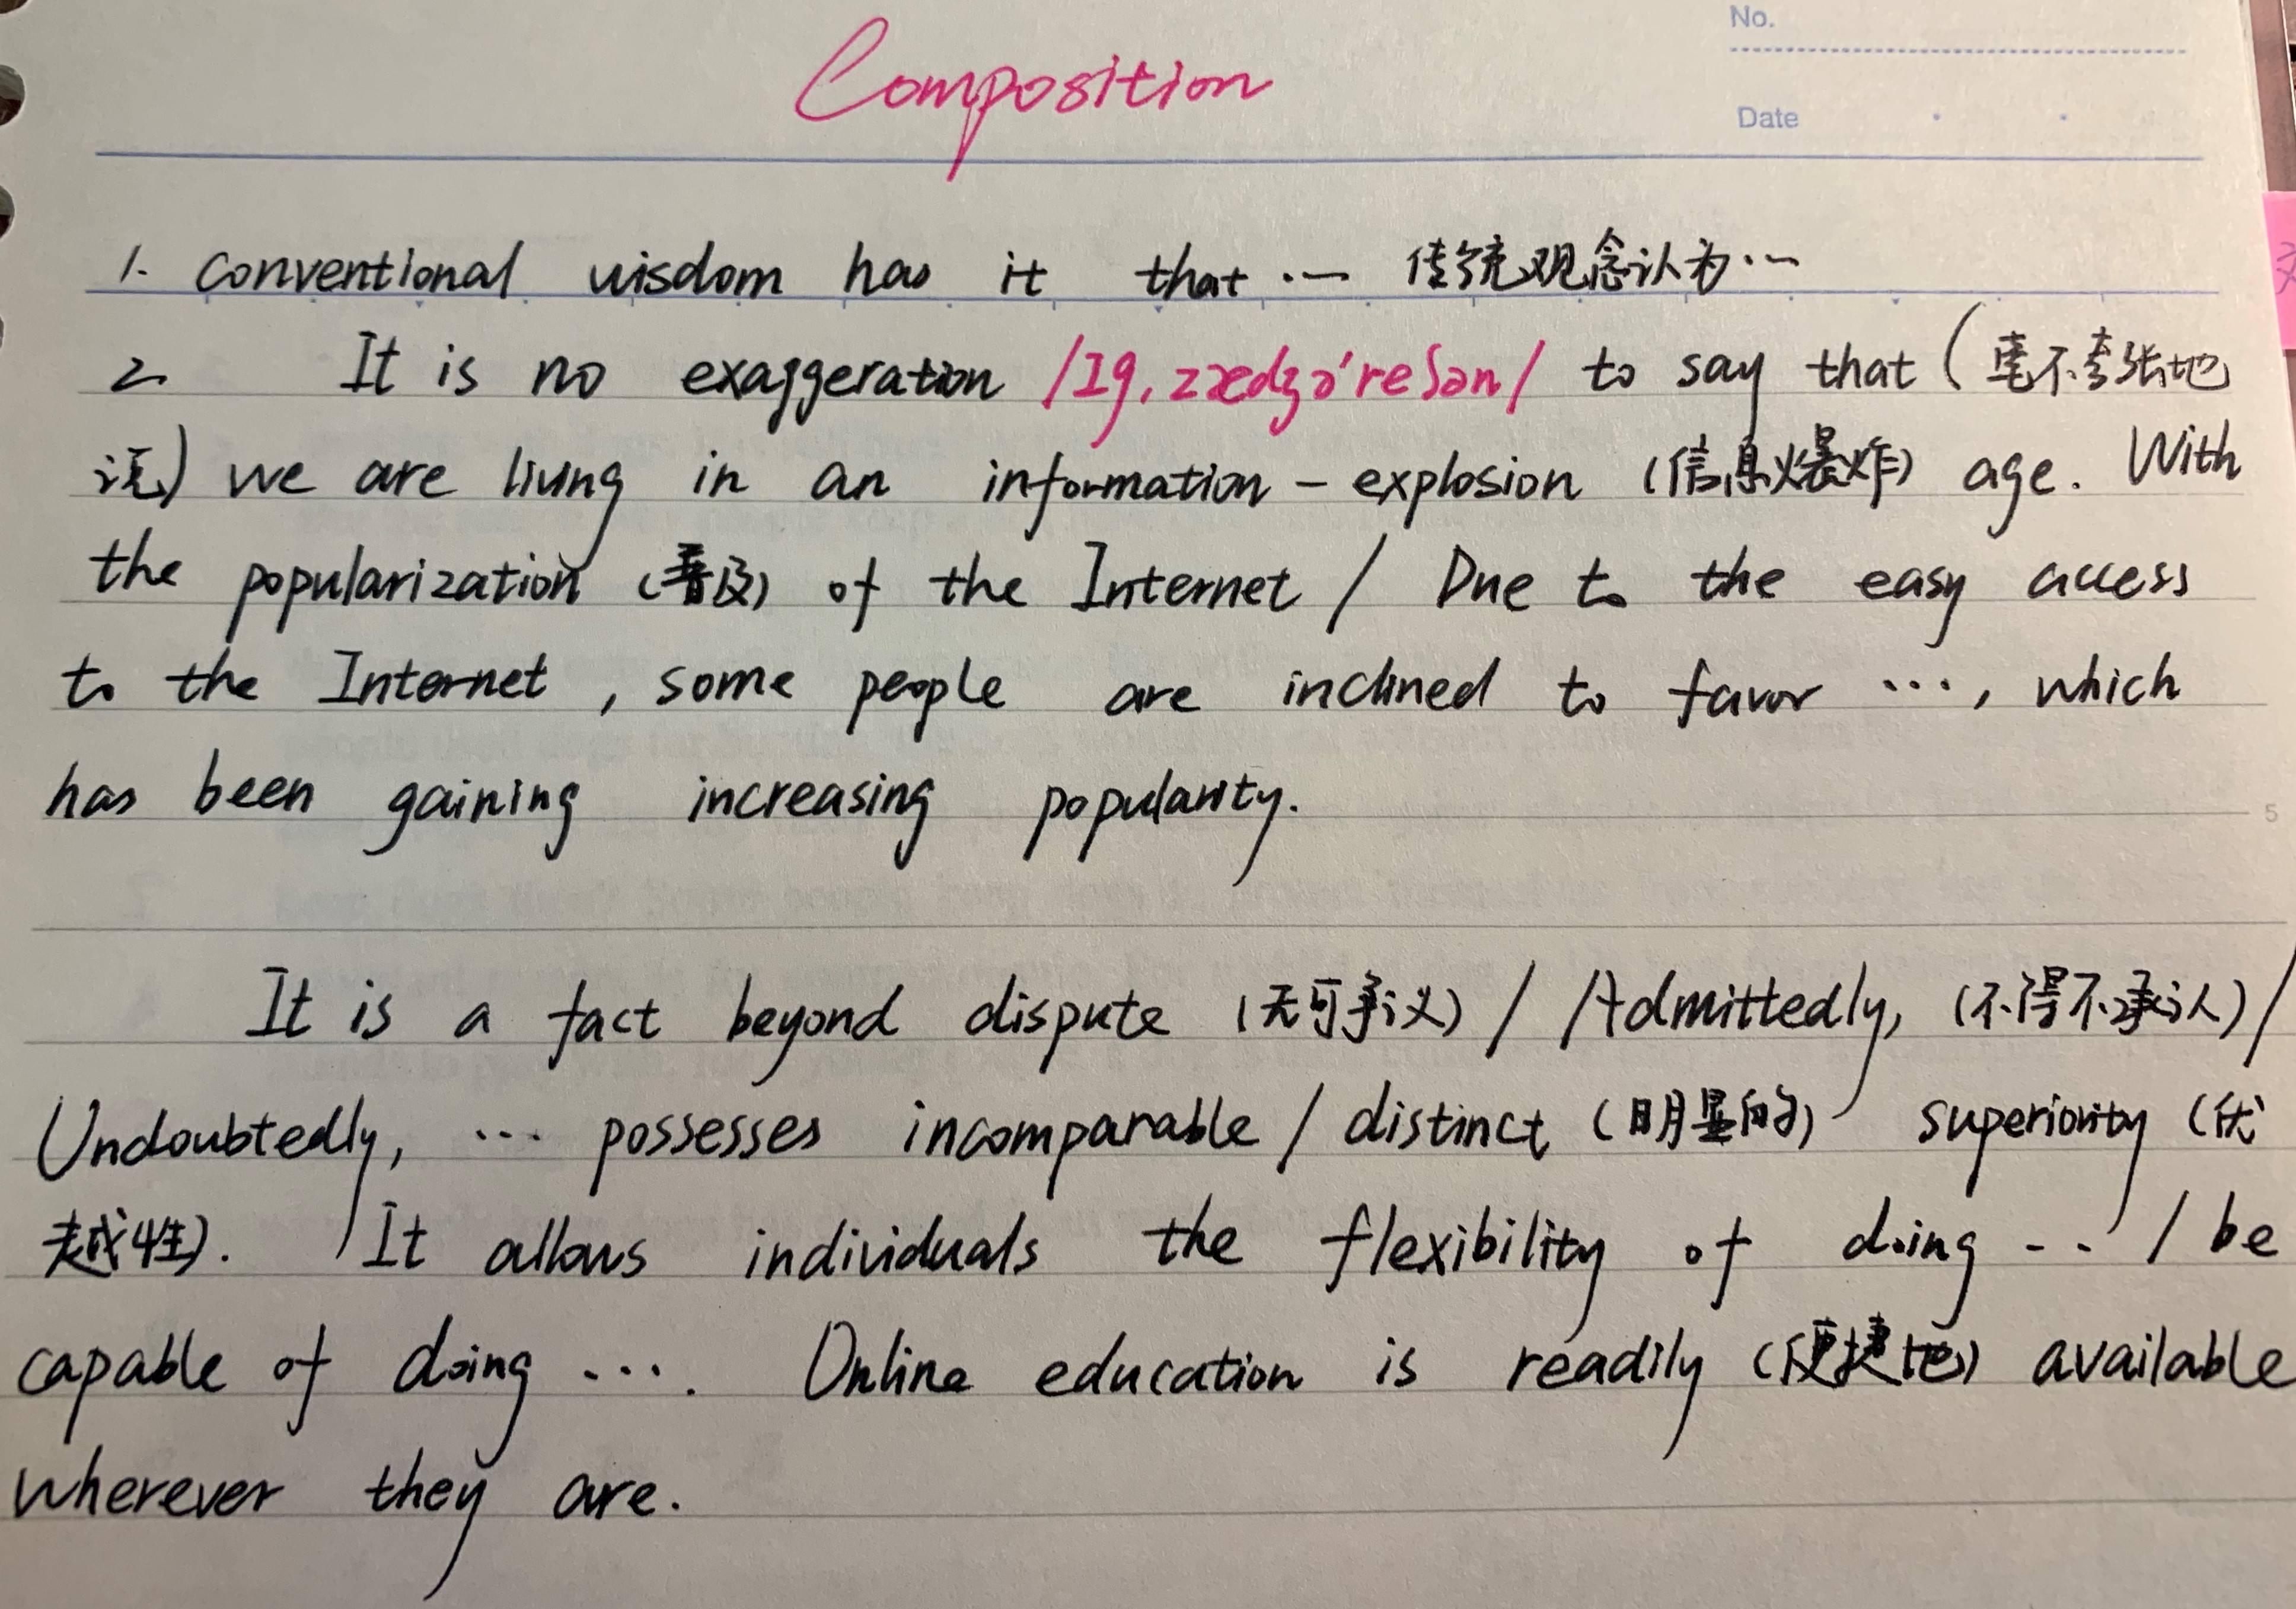 No.
Composition
Date
1. conventional wisdom has it that … 传统观念认为…
2. It is no exaggeration /Ig,zædʒə'reʃən/ to say that (毫不夸张地
说) we are living in an information-explosion (信息爆炸) age. With
the popularization (普及) of the Internet / Due to the easy access
to the Internet, some people are inclined to favor …, which
has been gaining increasing popularity.
5
It is a fact beyond dispute (无可争议) / Admittedly, (不得不承认) /
Undoubtedly, … possesses incomparable / distinct (明显的) superiority (优
越性). It allows individuals the flexibility of doing … / be
capable of doing …. Online education is readily (便捷地) available
wherever they are.